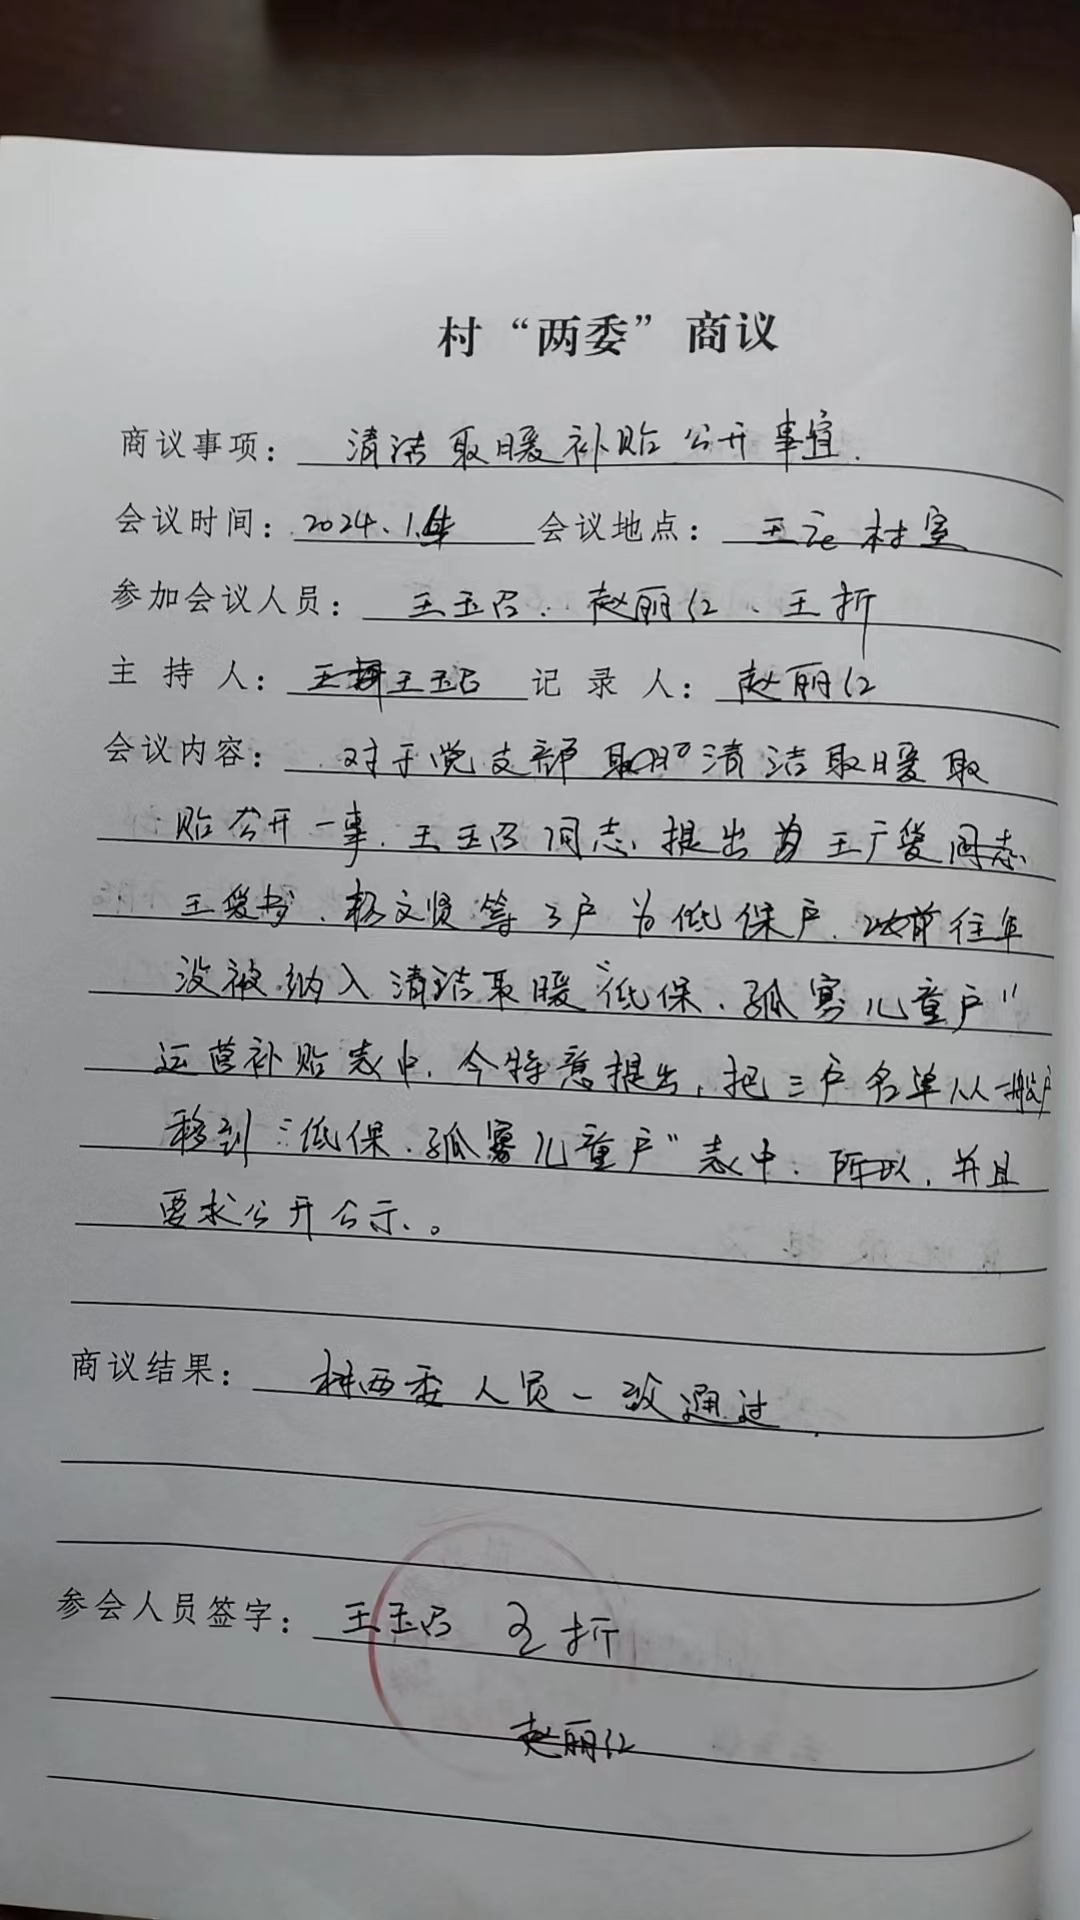 村“两委”商议
商议事项： 清洁取暖补贴公开事宜.
会议时间：2024.1. 会议地点： 王 村室
参加会议人员： 王玉召. 赵丽红、王折
主 持 人： 王玉召 记 录 人： 赵丽红
会议内容： 对于党支部 清洁取暖取
贴公开一事. 王玉召同志. 提出 王广爱同志
王爱书、杨文贤等3户为低保户. 以前往年
没被纳入清洁取暖“低保、孤寡儿童户”
运营补贴表中. 今特意提出，把三户名单从一般户
移到“低保、孤寡儿童户”表中. 并且
要求公开公示.。
商议结果： 村两委人员一致通过.
参会人员签字： 王玉召 王折
赵丽红